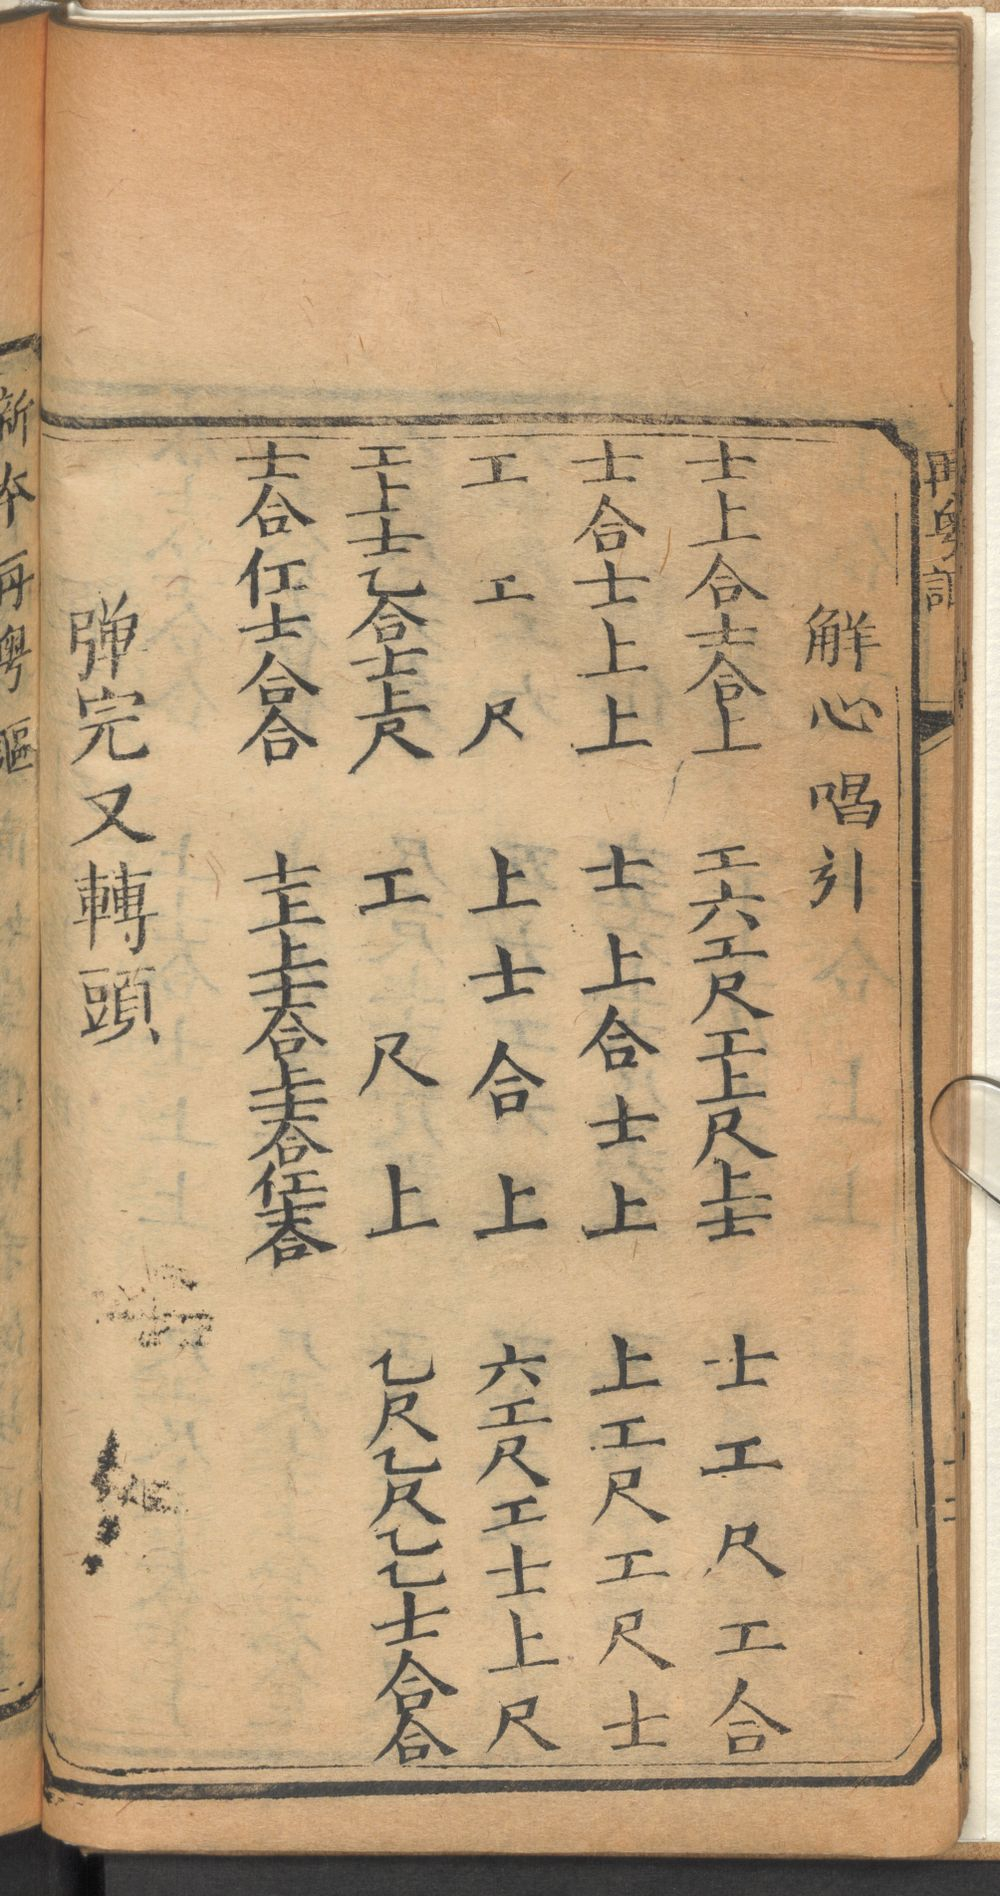 解心唱引
士上合士合上 工六工尺工上尺上士 士工尺工合
士合士上上 士上合士上 上工尺工尺士
工工尺 上士合上 六工尺工士上尺
工上士乙合士上尺 工尺上 乙尺乙尺乙乙士合合
士合仜士合合 士上上士合上士合仜士合
彈完又轉頭
新本再粵謳